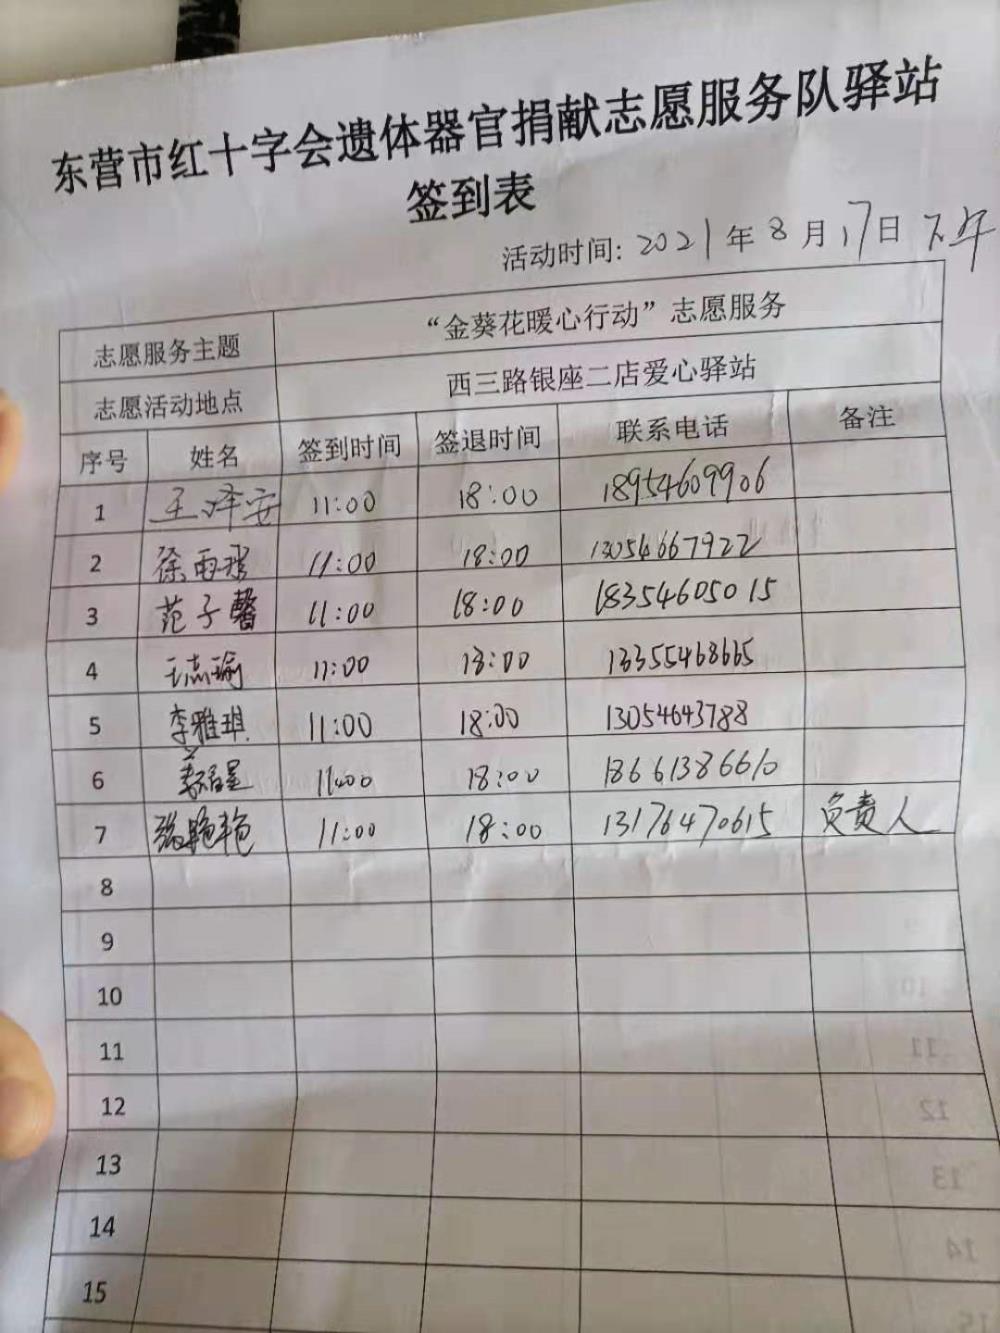 东营市红十字会遗体器官捐献志愿服务队驿站
签到表
活动时间: 2021年8月17日 下午
志愿服务主题 “金葵花暖心行动”志愿服务
志愿活动地点 西三路银座二店爱心驿站
序号 姓名 签到时间 签退时间 联系电话 备注
1 王泽安 11:00 18:00 18954609906
2 徐雨 11:00 18:00 13054667922
3 范子馨 11:00 18:00 18354605015
4 王志瑜 11:00 18:00 13355468665
5 李雅琪 11:00 18:00 13054643788
6 11:00 18:00 18661386610
7 张艳艳 11:00 18:00 13176470615 负责人
8
9
10
11
12
13
14
15